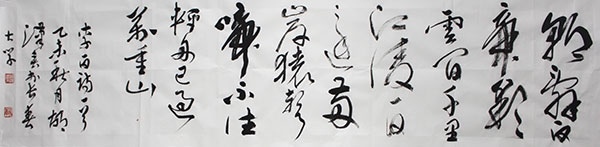 朝辞白
帝彩
雲间千里
江陵一日
还两
岸猿聲
啼不住
輕舟已過
萬重山
李白诗一首
乙未秋月